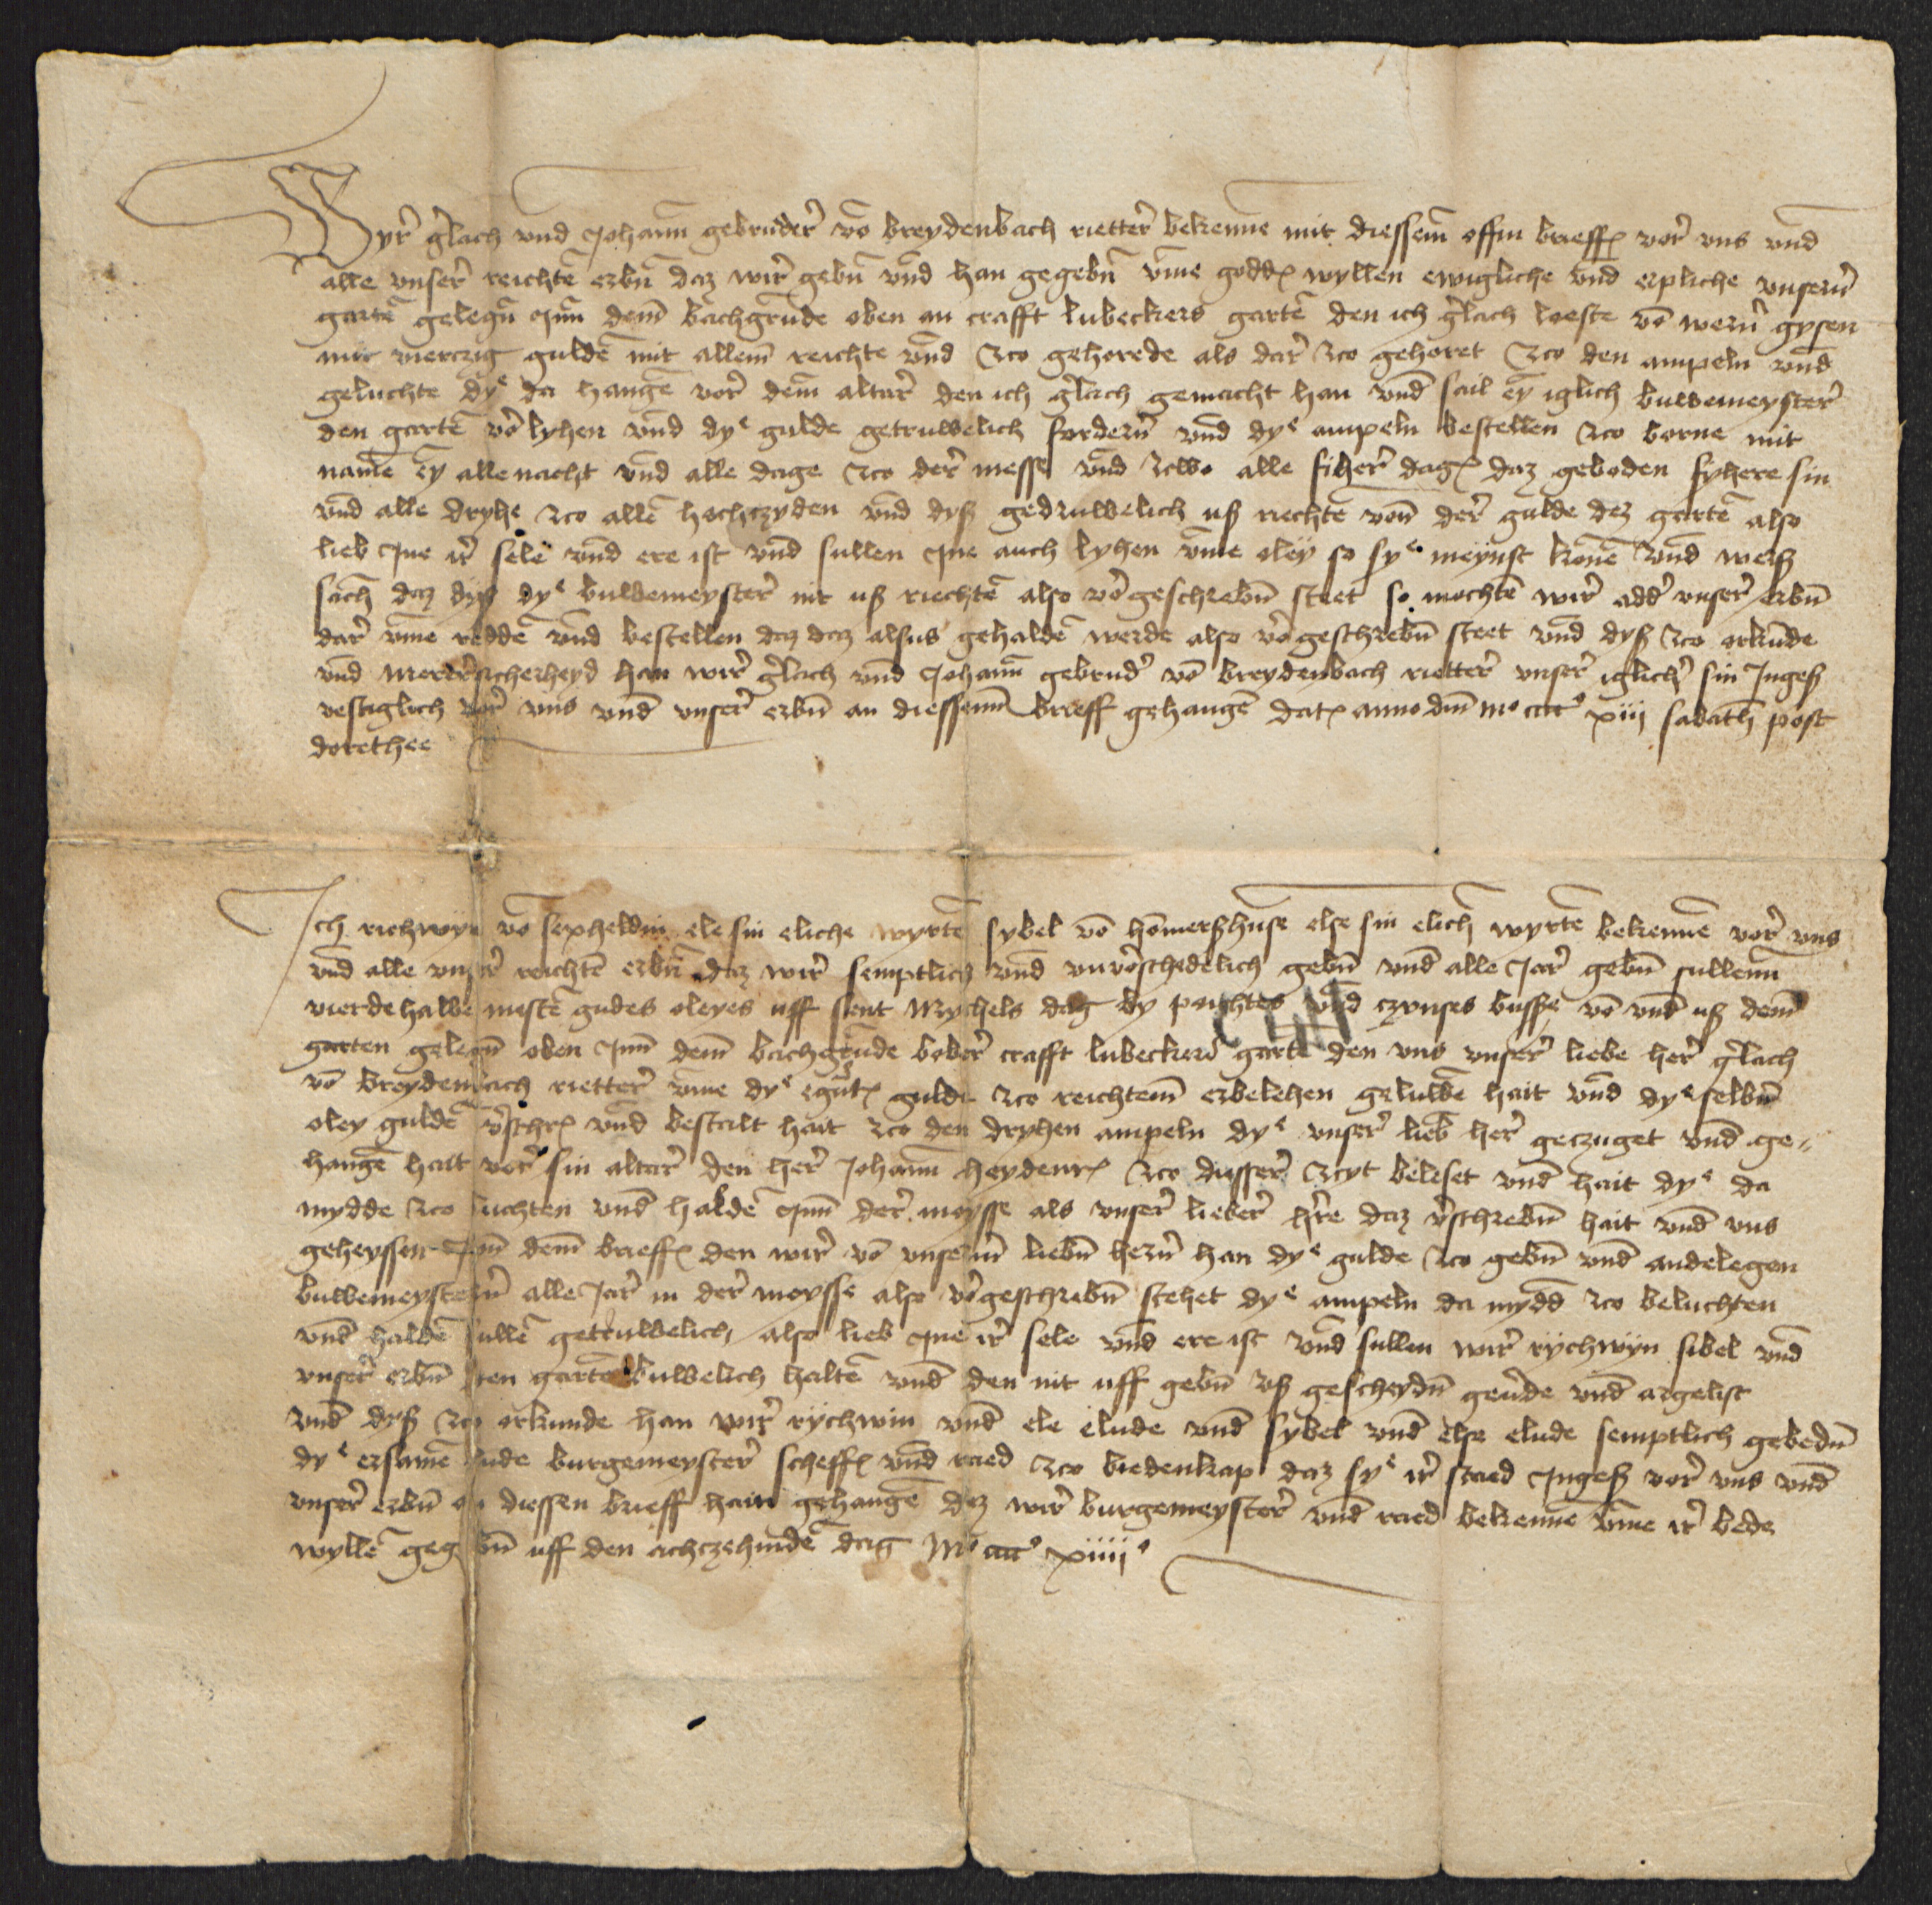 Wyr gerlach und Johann gebruder vō breydenbach rietter bekenne mit diessem offin brieffe vor uns und
alle unser reichtē erbn daz wir gebn und han gegebn ūme godde wyllen ewigliche und erpliche unsern
gartē gelegn inn dem bachgrunde oben an crafft lubeckers gartē den ich gerlach loeste vō wern gysen
mit vierczig guldē mit allem reichte und zco gehorede als dar zco gehoret zco den ampeln und
geluchte dye da hangē vor dem altar den ich gerlach gemacht han und sail ey iglich buwemeyster
den gartē v'lyhen und dye gulde getruwelich fordern und dye ampeln bestellen zco borne mit
namē ey alle nacht und alle dage zco der messe und zcwo alle fiher dage daz geboden fyhere sin
und alle dryhe zco allē hochczyden und dyß gedruwelich uß riechtē von der gulde dez gartē also
lieb yne ir sele und ere ist und sullen yne auch lyhen ūme oley so sye meynst konē und werß
sach daz dyß dye buwemeyster nit uß riechtē also vorgeschrebn steet so mochtē wir adder unser erbn
dar ūme reddē und bestellen daz daz alsus gehaldē werde also vorgeschrebn steet und dyß zco orkunde
und merer sicherheyd han wir gerlach und Johann gebruder vō breydenbach rietter unser iglicher sin Ingeß
vestiglich vor uns und unser erbn an diessenn brieff gehangē dat anno dm mº cccc º xiij sabath post
dorethee
Ich richwyn vō sexheldin ele sin eliche wyrtē sybel vō homerßhuse else sin elich wyrtē bekennē vor uns
und alle unser reichtē erbn daz wir semptlich und unverschedelich gebn und alle Jar gebn sullenn
vierdehalbe mestē gudes oleyes uff sent Mychels dag by pachtes und czynses busse vō und uß dem
garten gelegn oben inn dem bachgrunde bober crafft lubeckers gartē den uns unser liebe her gerlach
vō breydenbach rietter ūme dye gulde zco reichtem erbelehen geluwē hait und dye selbn
oley guldē v'schr und bestalt hait zco den dryhen ampeln dye unser lieb her geczuget und ge-
hangē hait vor sin altar den her Johann heydenr zco diesser zcyt beleset und hait dye da
mydde zco luchten und haldē inn der moysse als unser lieber here daz v'schrebn hait und uns
geheyssen inn dem brieffe den wir vō unsernn liebn hern han dye gulde zco gebn und andelegen
buwemeystern alle Jar in der moysse also vorgeschrebn stehet dye ampeln da mydd zco beluchten
und haldē sullē getruwelich also lieb yne ir sele und ere ist und sullen wir rychwyn sibel und
unser erbn den gartē buwelich haltē und den nit uff gebn uß gescheydn geverde und argelist
und dyß zco orkunde han wir rychwin und ele elude und sybel und else elude semptlich gebedn
dye ersamē lude burgemeyster scheffe und raed zco biedenkap daz sye ir staed Ingeß vor uns und
unser erbn an diessen brieff hain gehangē dez wir burgemeyster und raed bekenne ūme ir bede
wyllē gegebn uff den achczehindē dag Mº cccc º xiiii º